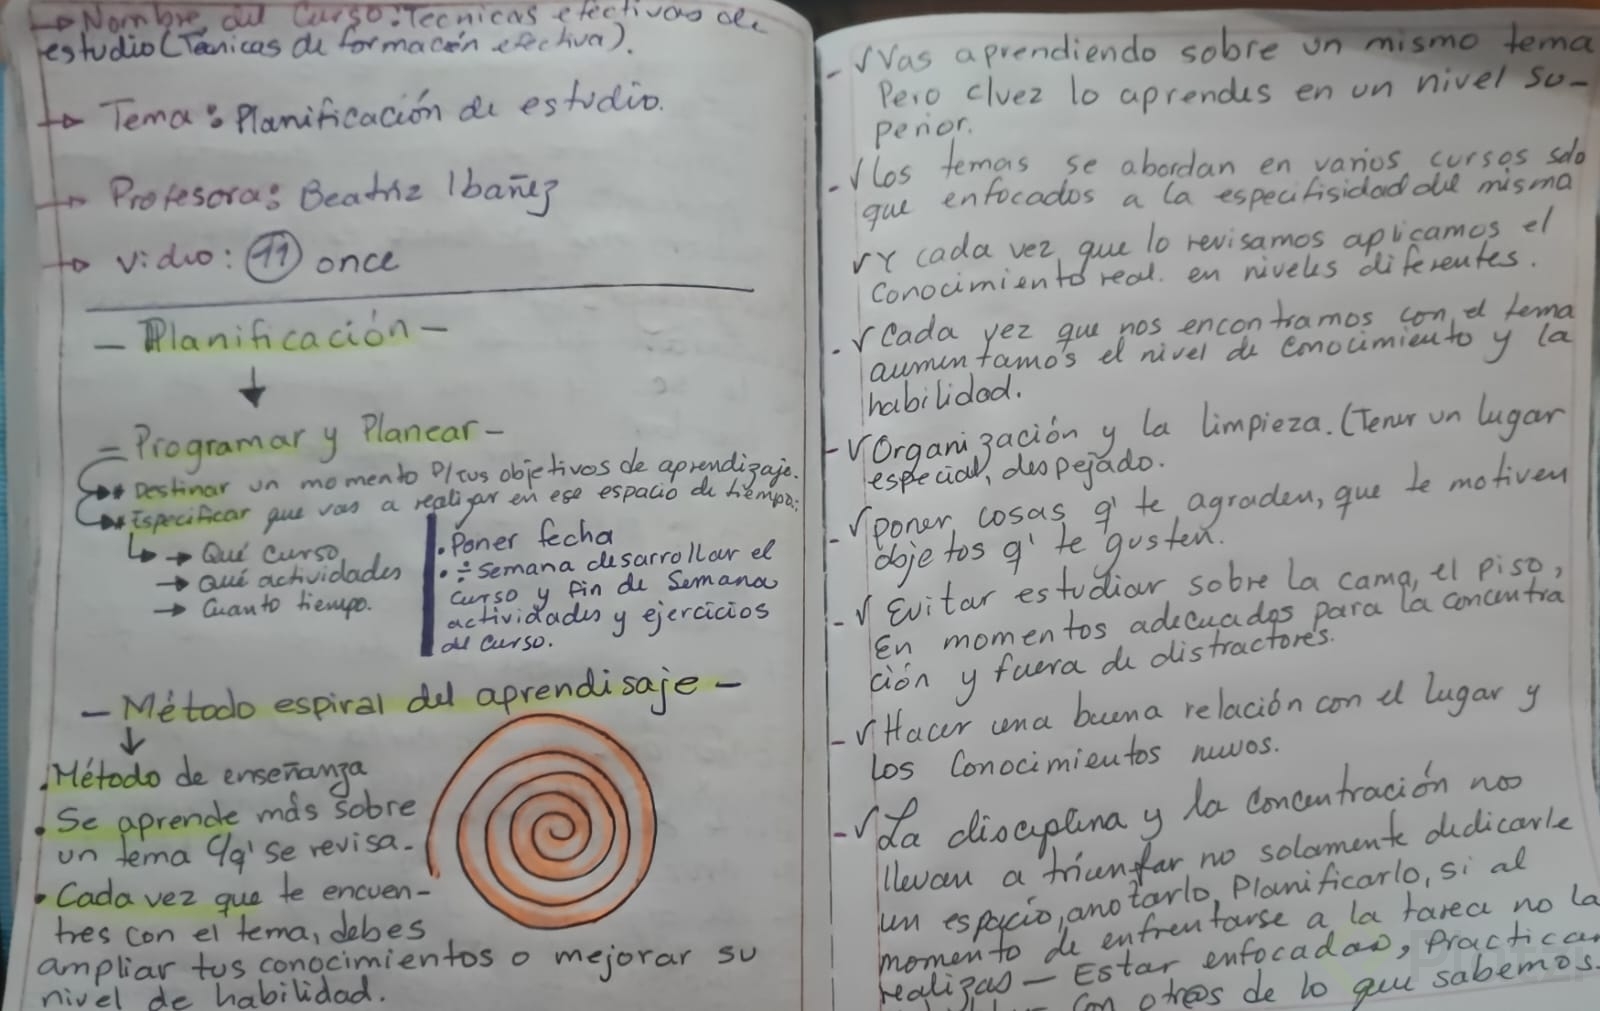 → Nombre del Curso: Tecnicas efectivas de
estudio (Técnicas de formación efectiva).
→ Tema: Planificación de estudio.
→ Profesora: Beatriz Ibañez
→ Video: 11 once
— Planificación —
↓
— Programar y Planear —
Destinar un momento p/tus objetivos de aprendizaje.
Especificar que vas a realizar en ese espacio de tiempo:
→ Qué curso
→ Qué actividades
→ Cuanto tiempo.
• Poner fecha
• ÷ Semana desarrollar el
curso y fin de Semana
actividades y ejercicios
del curso.
— Método espiral del aprendisaje —
↓
• Método de enseñanza
• Se aprende más sobre
un tema c/q' se revisa.
• Cada vez que te encuen-
tres con el tema, debes
ampliar tus conocimientos o mejorar su
nivel de habilidad.
- √ Vas aprendiendo sobre un mismo tema
Pero c/vez lo aprendes en un nivel su-
perior.
- √ Los temas se abordan en varios cursos solo
que enfocados a la especifisidad del misma
√ Y cada vez que lo revisamos aplicamos el
Conocimiento real. en niveles diferentes.
- √ Cada vez que nos encontramos con el tema
aumentamos el nivel de conocimiento y la
habilidad.
- √ Organización y la limpieza. (Tener un lugar
especial, despejado.
- √ poner cosas q' te agraden, que te motiven
objetos q' te gusten.
- √ Evitar estudiar sobre la cama, el piso,
En momentos adecuados para la concentra
ción y fuera de distractores.
- √ Hacer una buena relación con el lugar y
los Conocimientos nuvos.
- √ La disciplina y la concentración nos
llevan a triunfar no solamente dedicarle
un espacio, anotarlo, Planificarlo, si al
momento de enfrentarse a la tarea no la
realizas — Estar enfocados, Practicar
con otros de lo que sabemos.